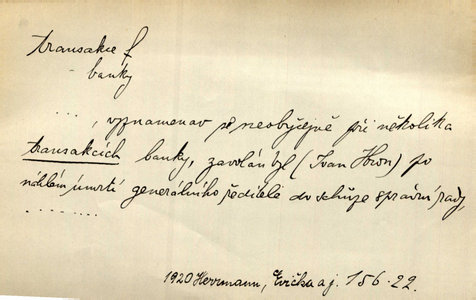 transakce f
- banky
. . . ., vyznamenav se neobyčejně při několika
transakcích banky, zavolán byl (Ivan Hron) po
náhlém úmrtí generálního ředitele do schůze správní rady,
- - - - - ...
1920 Herrmann, Evička a j. 156.22.